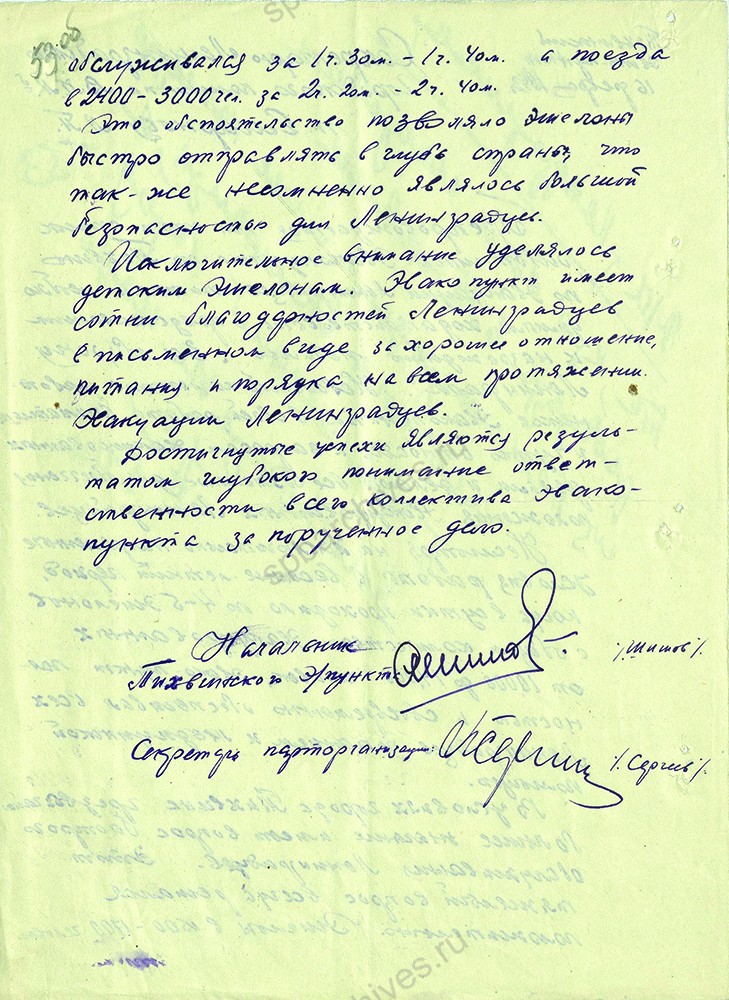 53 об
обслуживался за 1ч. 30м. – 1ч. 40м. а поезда
в 2400 – 3000 чел. за 2ч. 20м. – 2ч. 40м.
Это обстоятельство позволяло эшелоны
быстро отправлять в глубь страны, что
так-же несомненно являлось большой
безопасностью для Ленинградцев.
Исключительное внимание уделялось
детским эшелонам. Эвакопункт имеет
сотни благодарностей Ленинградцев
в письменном виде за хорошее отношение,
питания и порядка на всем протяжении
эвакуации Ленинградцев.
Достигнутые успехи являются резуль-
татом глубокого понимание ответ-
ственности всего коллектива эвако-
пункта за порученное дело.
Начальник
Тихвинского Э/пункта
/Шишов/.
Секретарь парторганизации:
/. Сергеев/.